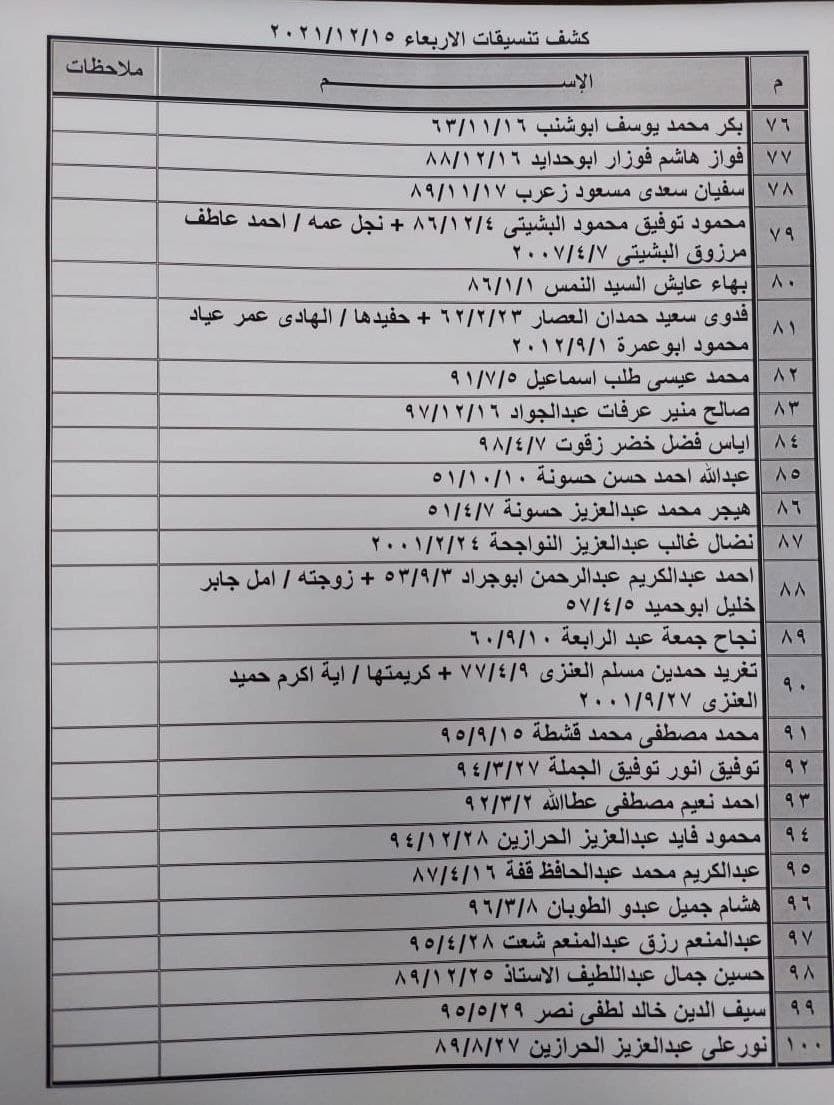 كشف تنسيقات الاربعاء ٢٠٢١/١٢/١٥
م الإســـــــــــــــــــم ملاحظات
٧٦ بكر محمد يوسف ابوشنب ٦٣/١١/١٦
٧٧ فواز هاشم فوزار ابوحدايد ٨٨/١٢/١٦
٧٨ سفيان سعدى مسعود زعرب ٨٩/١١/١٧
٧٩ محمود توفيق محمود البشيتى ٨٦/١٢/٤ + نجل عمه / احمد عاطف
مرزوق البشيتى ٢٠٠٧/٤/٧
٨٠ بهاء عايش السيد النمس ٨٦/١/١
٨١ فدوى سعيد حمدان العصار ٦٢/٢/٢٣ + حفيدها / الهادى عمر عياد
محمود ابوعمرة ٢٠١٢/٩/١
٨٢ محمد عيسى طلب اسماعيل ٩١/٧/٥
٨٣ صالح منير عرفات عبدالجواد ٩٧/١٢/١٦
٨٤ اياس فضل خضر زقوت ٩٨/٤/٧
٨٥ عبدالله احمد حسن حسونة ٥١/١٠/١٠
٨٦ هيجر محمد عبدالعزيز حسونة ٥١/٤/٧
٨٧ نضال غالب عبدالعزيز النواجحة ٢٠٠١/٢/٢٤
٨٨ احمد عبدالكريم عبدالرحمن ابوجراد ٥٣/٩/٣ + زوجته / امل جابر
خليل ابوحميد ٥٧/٤/٥
٨٩ نجاح جمعة عبد الرابعة ٦٠/٩/١٠
٩٠ تغريد حمدين مسلم العنزى ٧٧/٤/٩ + كريمتها / اية اكرم حميد
العنزى ٢٠٠١/٩/٢٧
٩١ محمد مصطفى محمد قشطة ٩٥/٩/١٥
٩٢ توفيق انور توفيق الجملة ٩٤/٣/٢٧
٩٣ احمد نعيم مصطفى عطاالله ٩٢/٣/٢
٩٤ محمود فايد عبدالعزيز الحرازين ٩٤/١٢/٢٨
٩٥ عبدالكريم محمد عبدالحافظ قفة ٨٧/٤/١٦
٩٦ هشام جميل عبدو الطوبان ٩٦/٣/٨
٩٧ عبدالمنعم رزق عبدالمنعم شعت ٩٥/٤/٢٨
٩٨ حسين جمال عبداللطيف الاستاذ ٨٩/١٢/٢٥
٩٩ سيف الدين خالد لطفى نصر ٩٥/٥/٢٩
١٠٠ نورعلى عبدالعزيز الحرازين ٨٩/٨/٢٧